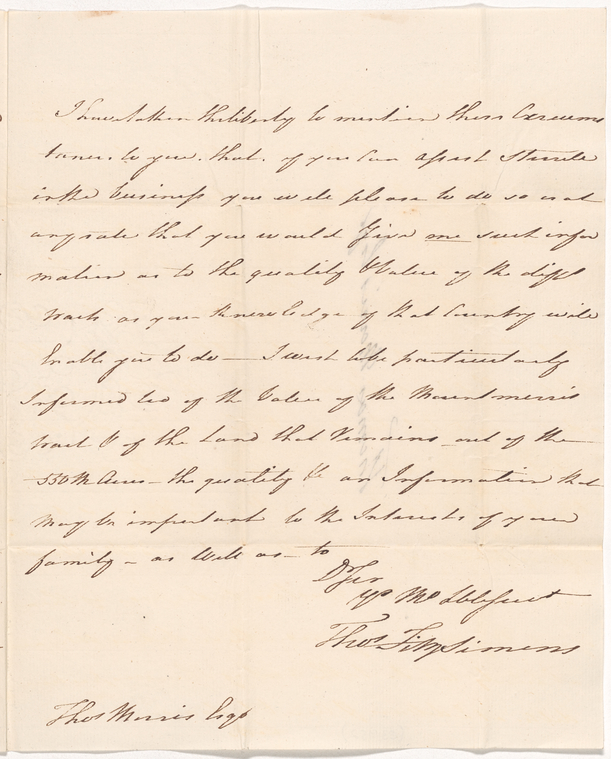 I have taken the liberty to mention these Circums
tances to you. that. if you Can assist Steele
in the business you will please to do so or at
any rate that you would Give me such infor
mation as to the quality & Value of the diff.t
tracts as your Knowledge of that Country will
Enable you to do — I wish to be particularly
Informed too of the Value of the Mount morris
tract & of the Land that Remains out of the
550 M Acres – the quality &c an Information that
may be important to the Interests of your
family – as well as – to
D Sir
Yr Mo Obt Servt
Thos FitzSimons
Thos Morris Esqr